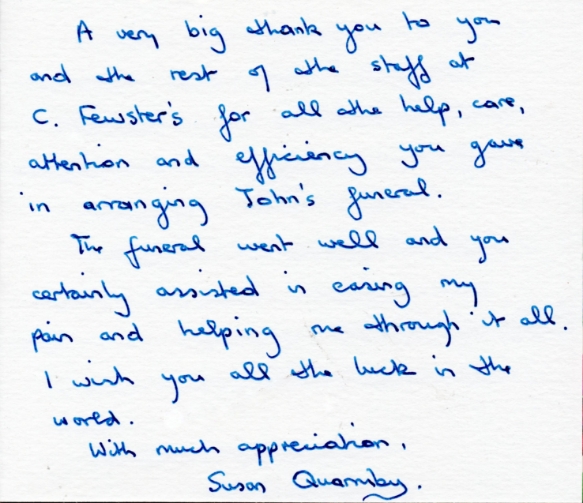 A very big thank you to you
and the rest of the staff at
C. Fewster's for all the help, care,
attention and efficiency you gave
in arranging John's funeral.
The funeral went well and you
certainly assisted in easing my
pain and helping me through it all.
I wish you all the luck in the
world.
With much appreciation.
Susan Quarmby.